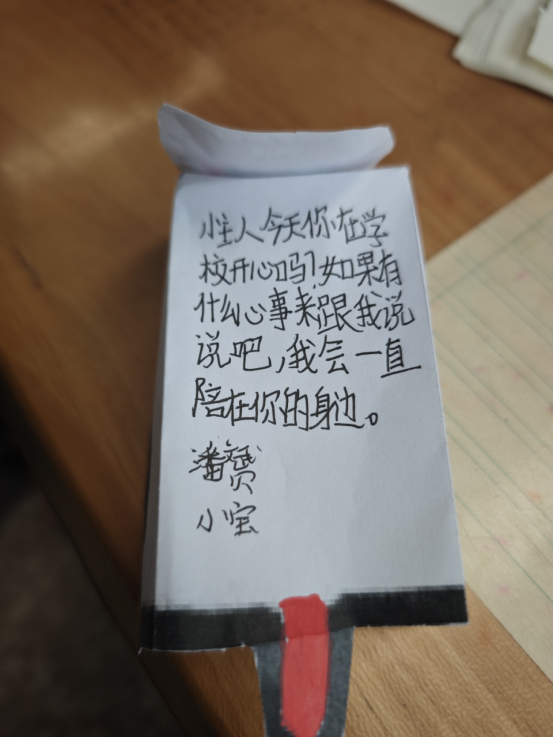 小主人今天你在学
校开心吗?如果有
什么心事来跟我说
说吧,我会一直
陪在你的身边。
潘赟
小宝